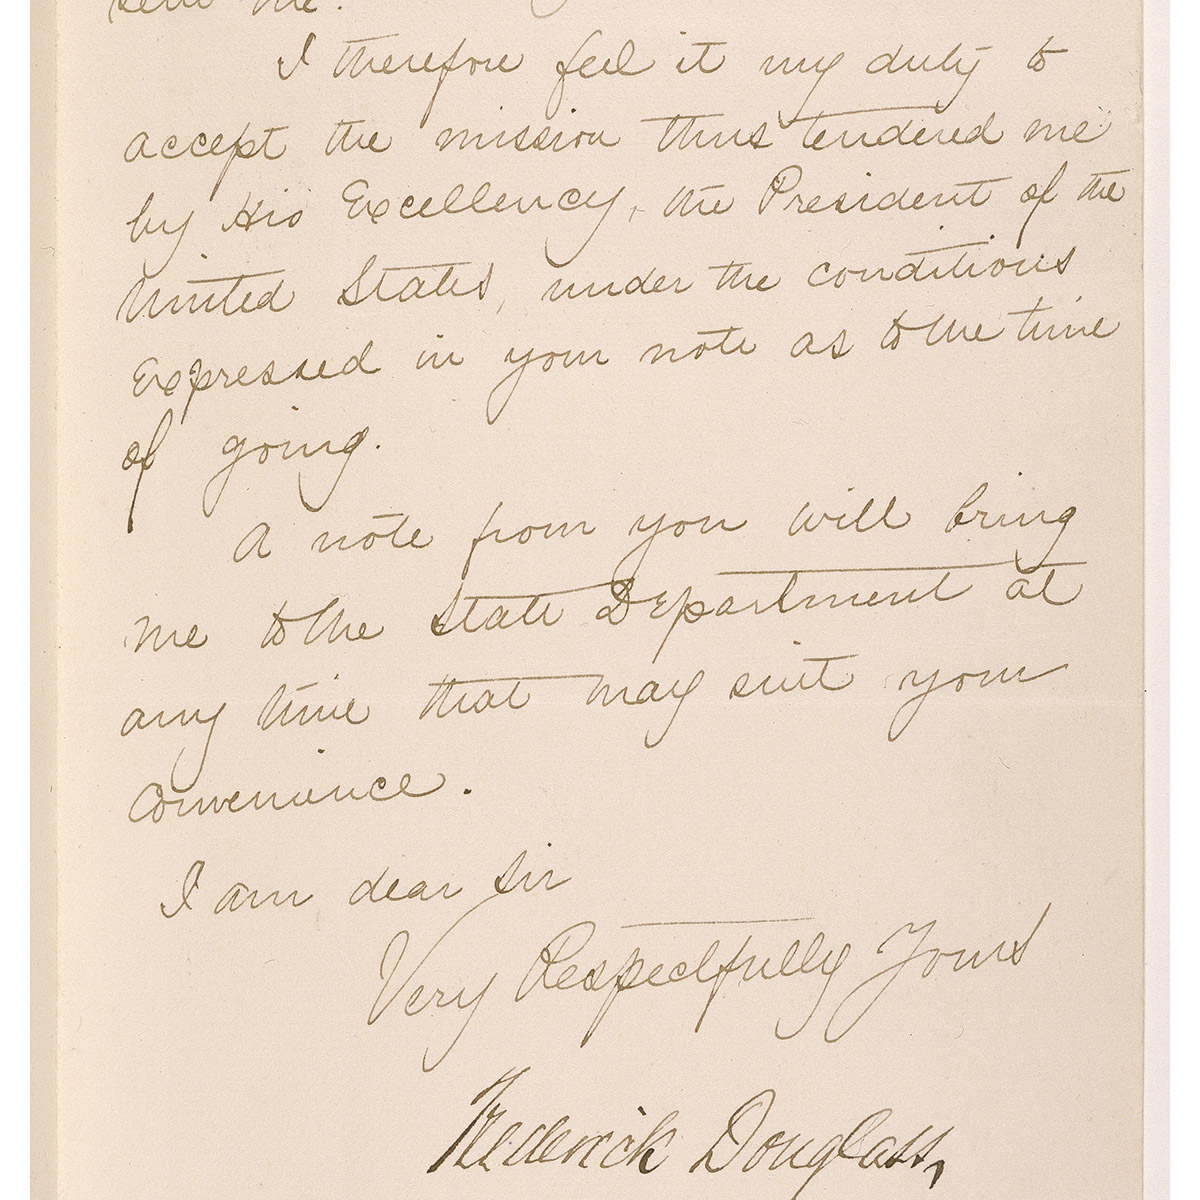 send me.
I therefore feel it my duty to
accept the mission thus tendered me
by His Excellency, the President of the
United States, under the conditions
Expressed in your note as to the time
of going.
A note from you will bring
me to the State Department at
any time that may suit your
convenience.
I am dear Sir
Very Respectfully Yours
Frederick Douglass,